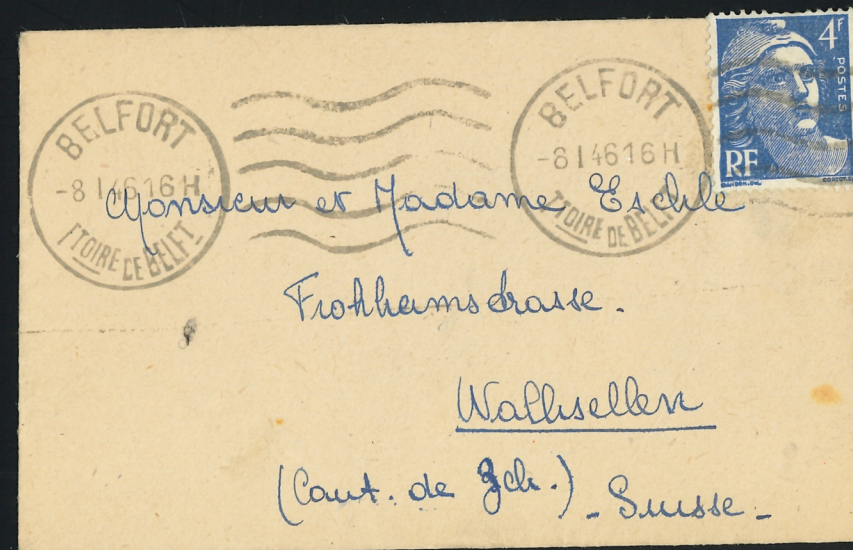 4F
POSTES
RF
BELFORT
-8 I 46 16 H
TTOIRE DE BELFT
BELFORT
-8 I 46 16 H
TTOIRE DE BELFT
Monsieur et Madame Eschle
Frohheimstrasse.
Wallisellen
(Cant. de Zch.) - Suisse -